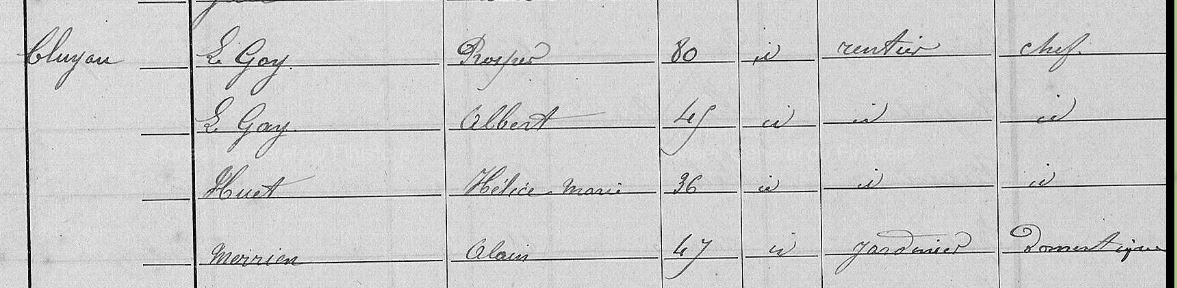 Cluyou Le Goy Prosper 80 id rentier chef
Le Goy Albert 45 id id id
Huet Hélice Marie 36 id id id
Merrien Alain 47 id jardinier Domestique